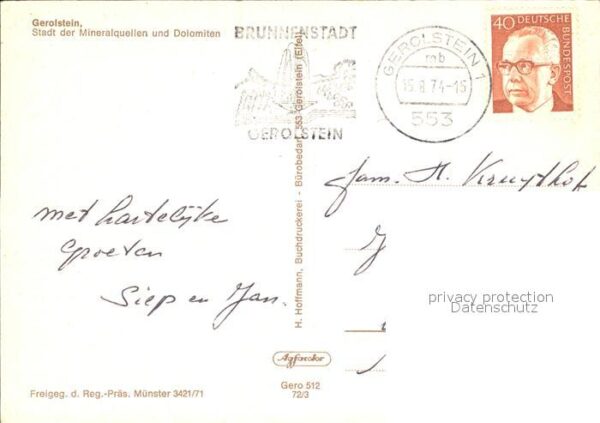 Gerolstein,
Stadt der Mineralquellen und Dolomiten
BRUNNENSTADT
GEROLSTEIN
GEROLSTEIN 1
mb
15.8.74-15
553
40 DEUTSCHE
BUNDESPOST
Fam. H. Kruythof
met hartelijke
groeten
Siep en Jan.
H. Hoffmann, Buchdruckerei - Bürobedarf, 553 Gerolstein (Eifel)
privacy protection
Datenschutz
Agfacolor
Gero 512
72/3
Freigeg. d. Reg.-Präs. Münster 3421/71